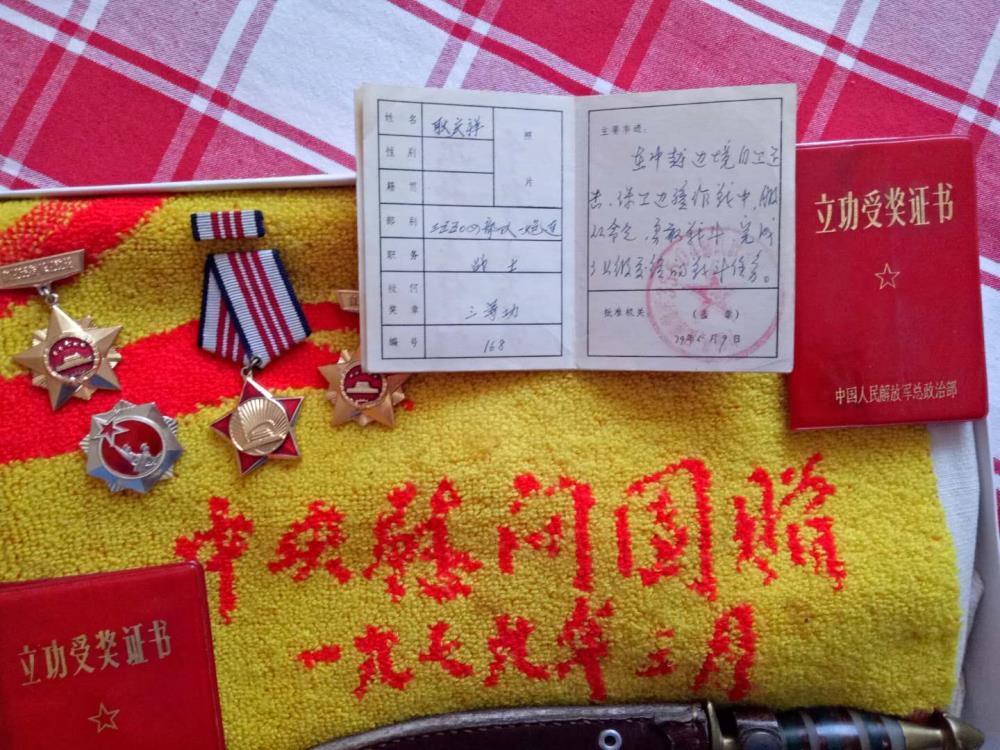 姓名 耿庆祥
照片
性别
籍贯
部别 三五三〇四部队一炮连
职务 战士
授何奖章 三等功
编号 168
主要事迹:
在中越边境自卫还
击、保卫边疆作战中,服
从命令,勇敢战斗,完成
了上级交给的战斗任务。
批准机关: (盖章)
79年 月9日
立功受奖证书
中国人民解放军总政治部
中央慰问团赠
一九七九年三月
立功受奖证书